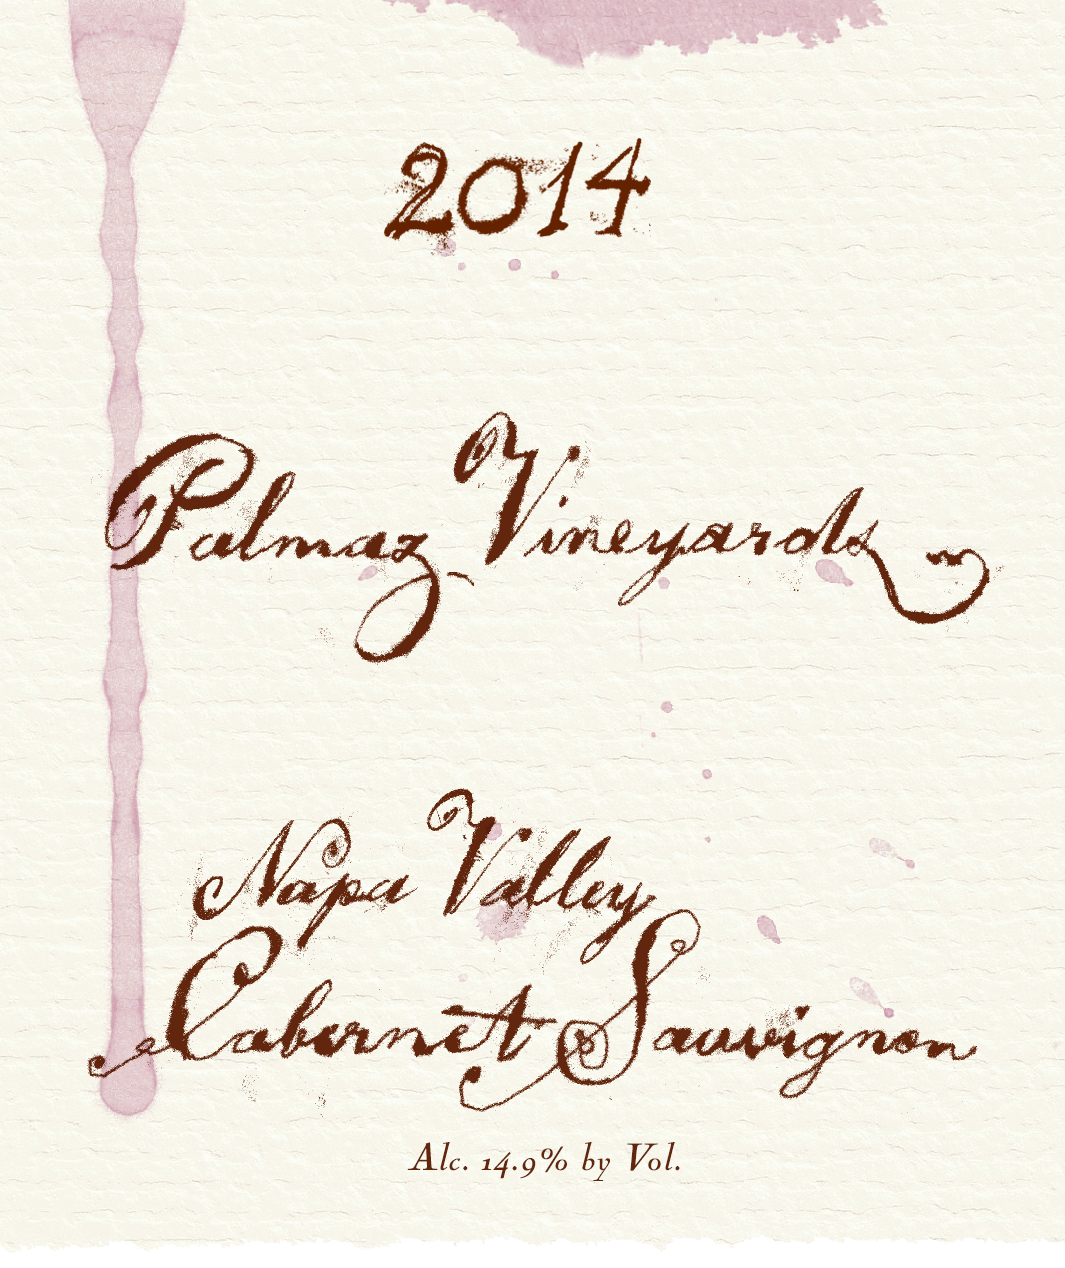 2014
Palmaz Vineyards
Napa Valley
Cabernet Sauvignon
Alc. 14.9% by Vol.